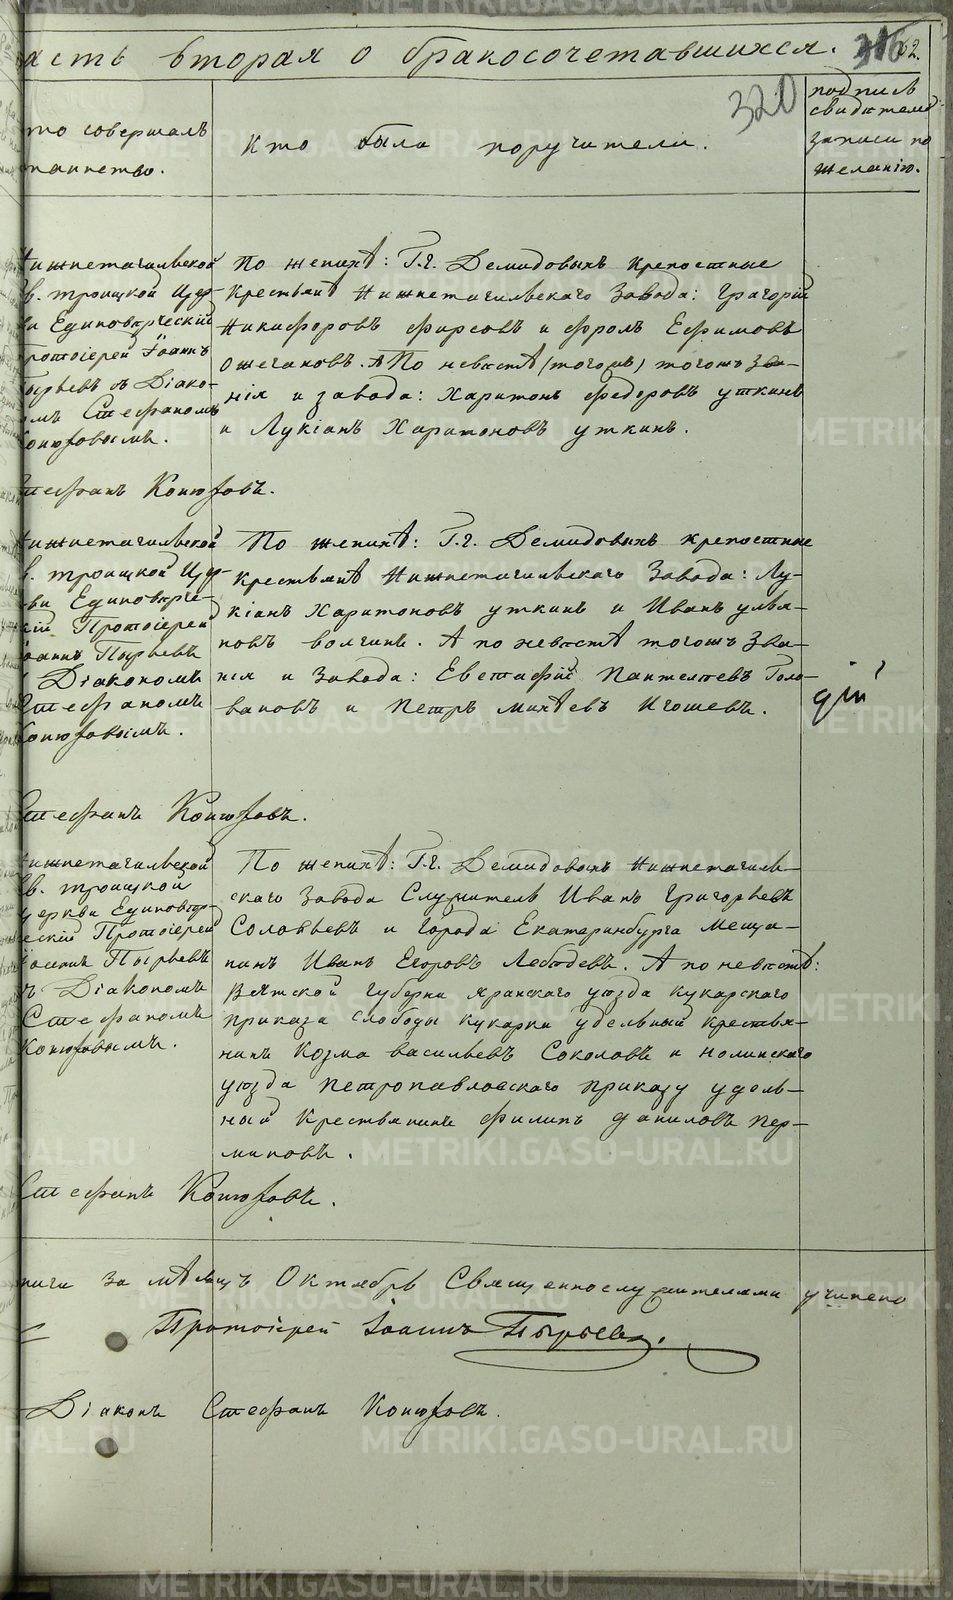 асть вторая о бракосочетавшихся.
320
то совершалъ
таинство.
Кто были поручители.
подпись
свидетелей
записи по
желанію.
Нижнетагильской
Св. троицкой Цер-
кви Единоверческій
Протоіерей Іоаннъ
Пырьевъ съ Діако-
номъ Стефаномъ
Конюховымъ.
По женихѣ: Г.г. Демидовыхъ крепостные
крестьянѣ Нижнетагильскаго Завода: Григорій
Никифоровъ Фирсовъ и Фролъ Ефимовъ
Ожегановъ. А По невестѣ (тогожъ) тогожъ зва-
нія и завода: Харитонъ Федоровъ уткинъ
и Лукіанъ Харитоновъ уткинъ.
Стефанъ Конюховъ.
Нижнетагильской
Св. троицкой Цер-
кви Единоверче-
скій Протоіерей
Іоаннъ Пырьевъ
Діакономъ
Стефаномъ
Конюховымъ.
По женихѣ: Г.г. Демидовыхъ крепостные
Крестьянѣ Нижнетагильскаго Завода: Лу-
кіанъ Харитоновъ уткинъ и Иванъ улья-
новъ волгинъ. А по невестѣ тогожъ Зва-
нія и Завода: Евстафій Пантелеевъ Голо-
вановъ и Петръ михѣевъ Игошевъ.
Стефанъ Конюховъ.
Нижнетагильской
Св. троицкой
церкви Единовер-
ческій Протоіерей
Іоаннъ Пырьевъ
съ Діакономъ
Стефаномъ
Конюховымъ.
По женихѣ: Г.г. Демидовыхъ Нижнетагиль-
скаго Завода Служитель Иванъ Григорьевъ
Соловьевъ и города Екатеринбурга меща-
нинъ Иванъ Егоровъ Лебедевъ. А по невестѣ:
Вятской губерни яранскаго уезда кукарскаго
приказа слободы кукарки удельный крестья-
нинъ Козма васильевъ Соколовъ и нолинскаго
уезда петропавловскаго приказу удель-
ный крестьянинъ филипъ даниловъ пер-
миновъ.
Стефанъ Конюховъ.
ниги за мѣсяцъ Октябрь Священнослужителями учинено
Протоіерей Іоаннъ Пырьевъ.
Діаконъ Стефанъ Конюховъ.
METRIKI.GASO-URAL.RU